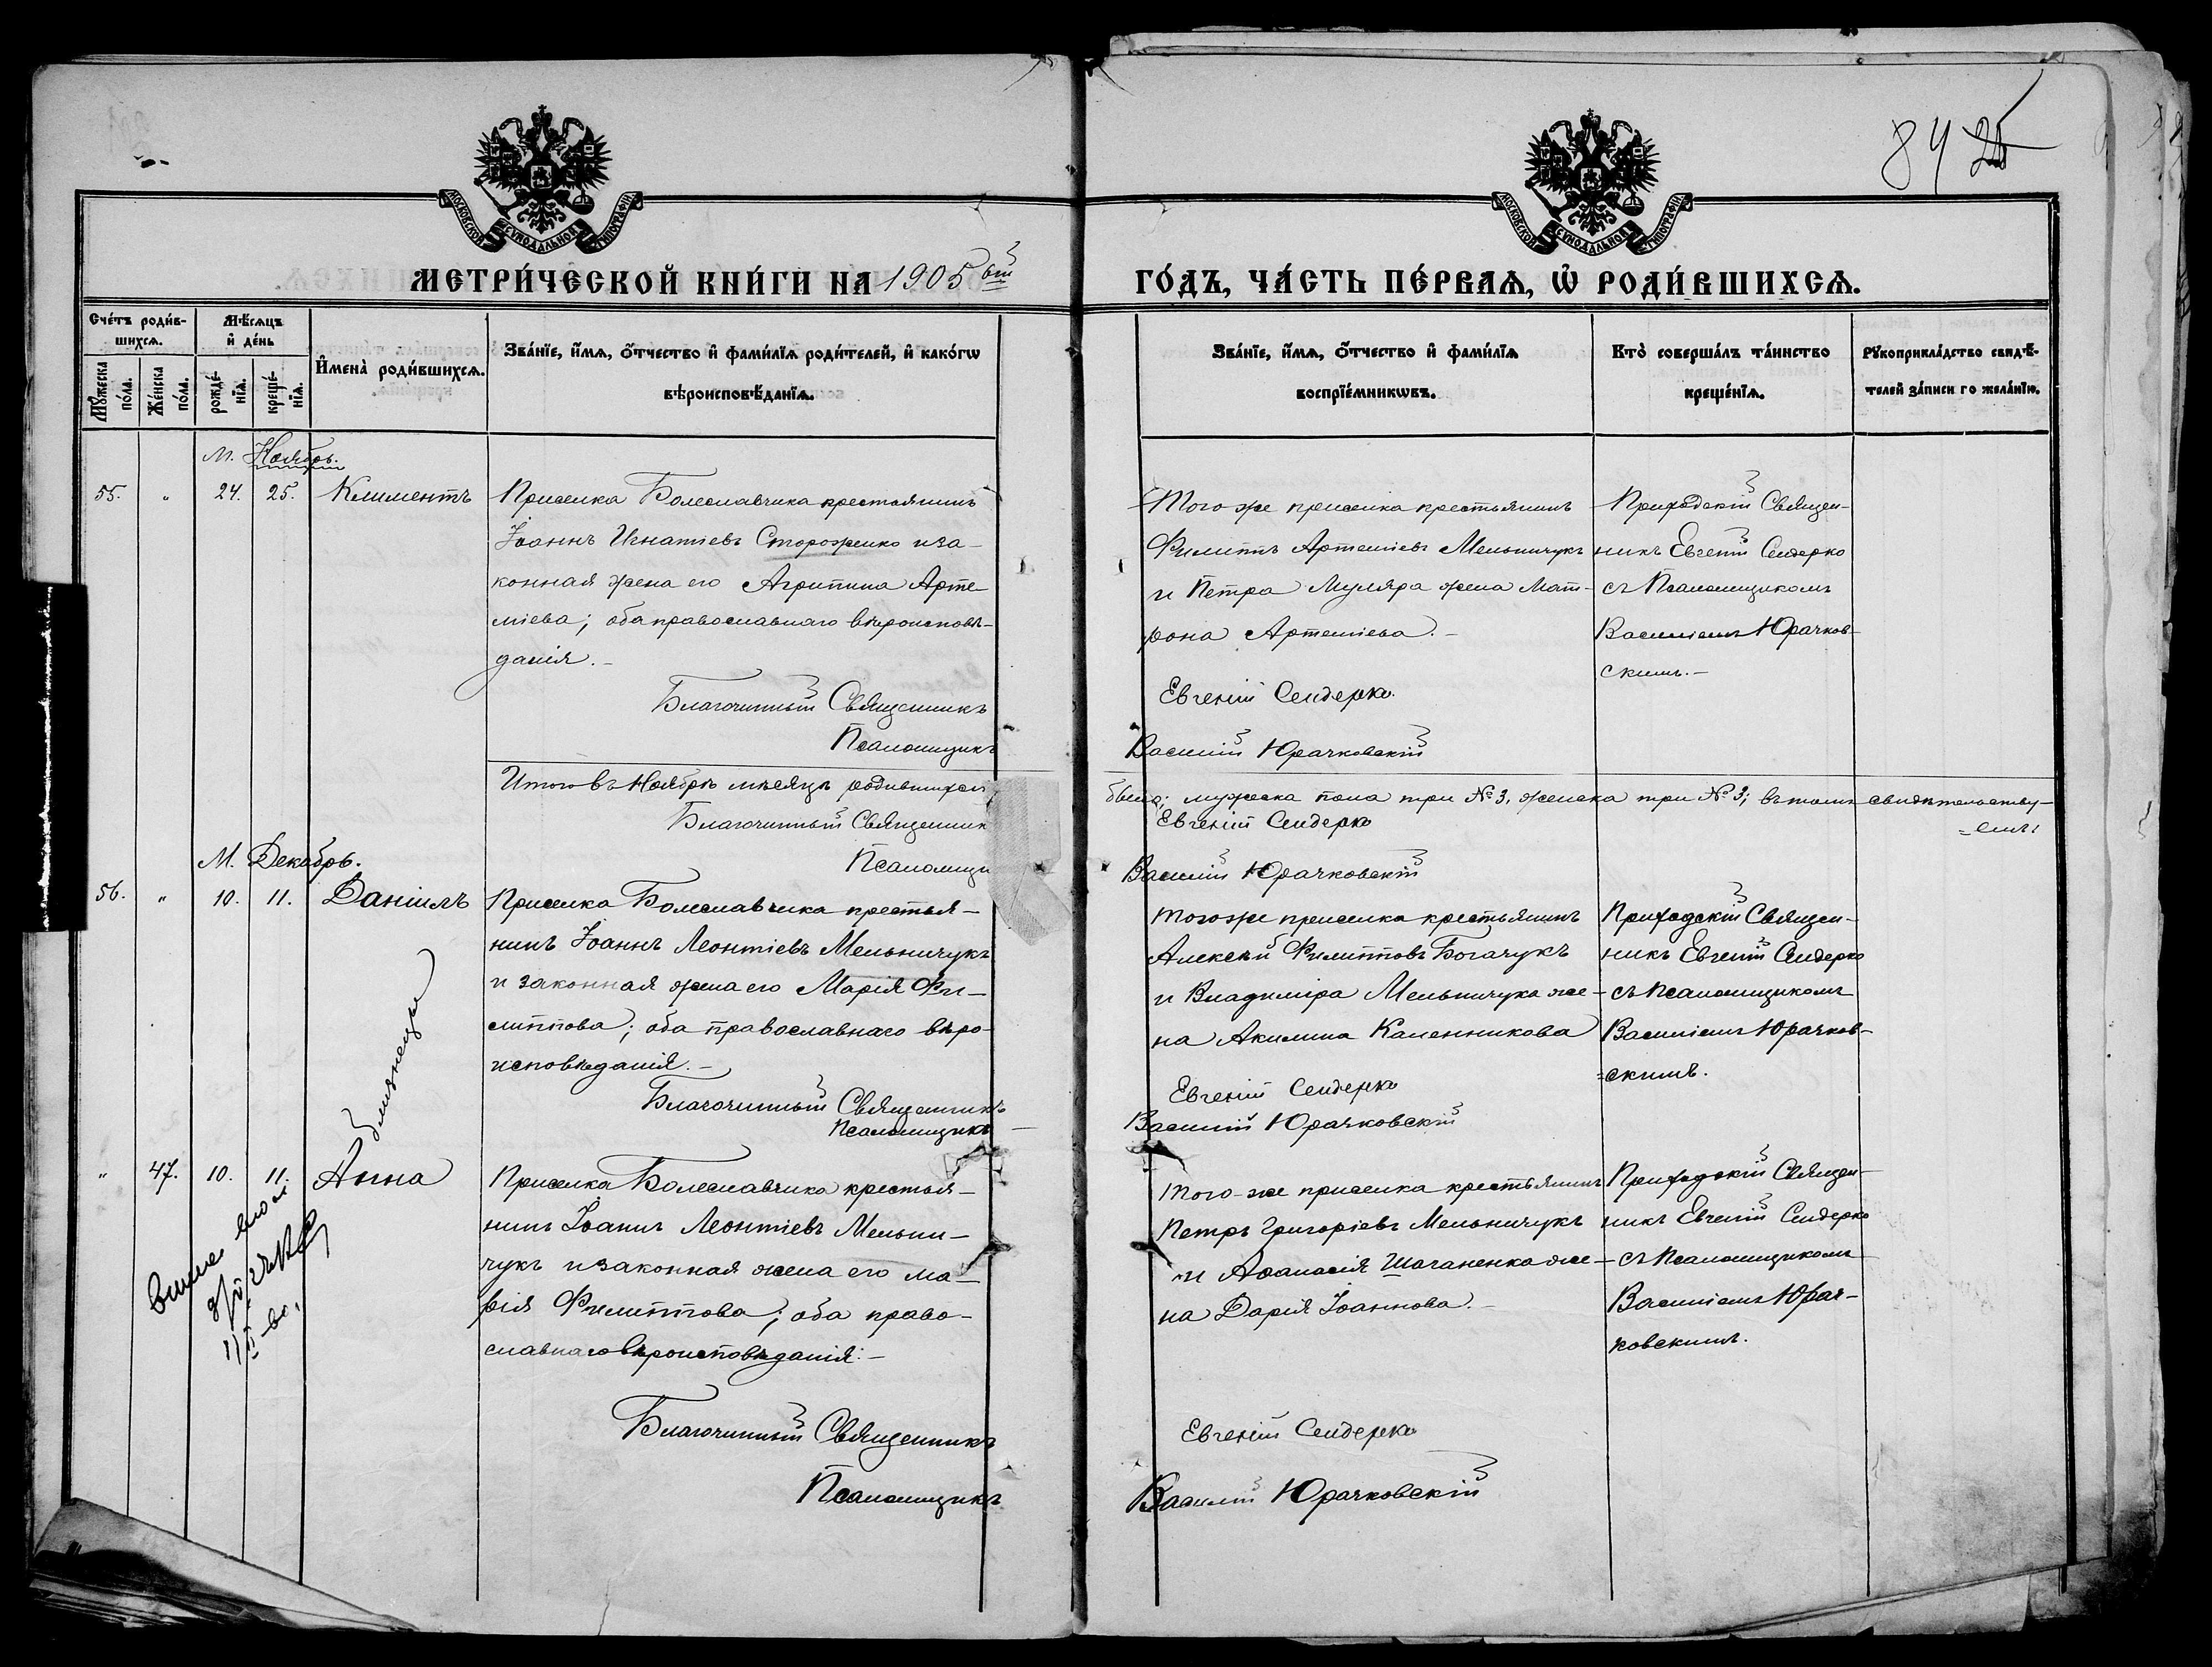 84 25
МОСКОВСКОЙ СѴНОДАЛЬНОЙ ТИПОГРАФІИ
МОСКОВСКОЙ СѴНОДАЛЬНОЙ ТИПОГРАФІИ
МЕТРИ́ЧЕСКОЙ КНИ́ГИ НА 1905 ый
ГО́ДЪ, ЧА́СТЬ ПЕ́РВАѦ, Ѡ҆ РОДИ́ВШИХСѦ.
Сче́тъ роди́в-
шихсѧ.
Мꙋ́жеска по́ла.
Же́нска по́ла.
Мѣ́сѧцъ
и҆ де́нь
рожде́-
нїѧ.
креще́-
нїѧ.
И҆мена̀ роди́вшихсѧ.
Зва́нїе, и҆́мѧ, ѻ҆́тчество и҆ фами́лїѧ роди́телей, и҆ како́гѡ
вѣроисповѣ́данїѧ.
Зва́нїе, и҆́мѧ, ѻ҆́тчество и҆ фами́лїѧ
воспрїе́мникѡвъ.
Кто̀ соверша́лъ та́инство
креще́нїѧ.
Рꙋкоприкла́дство свидѣ́-
телей за́писи по жела́нїю.
М. Ноябрь.
55. " 24. 25. Климентъ
Приселка Болеславчика крестьянинъ
Іоаннъ Игнатіевъ Стороженко и за-
конная жена его Агрипина Арте-
міева; оба православнаго вѣроисповѣ-
данія.-
Благочинный Священникъ
Псаломщикъ
Того же приселка крестьянинъ
Филиппъ Артеміевъ Мельничукъ
и Петра Муляра жена Мат-
рона Артеміева.-
Евгеній Сендерко
Василій Юрачковскій
Приходскій Священ-
никъ Евгеній Сендерко
съ Псаломщикомъ
Василіемъ Юрачков-
скимъ.-
Итого въ Ноябрѣ мѣсяцѣ родившихся
было; мужеска пола три № 3, женска три № 3; въ томъ свидѣтельству-
=емъ:
Благочинный Священник
Евгеній Сендерко
Псаломщи
Василій Юрачковскій
М. Декабрь.
56. " 10. 11. Даніилъ
Приселка Болеславчика крестья-
нинъ Іоаннъ Леонтіевъ Мельничукъ
и законная жена его Марія Фи-
липпова; оба православнаго вѣро-
исповѣданія.-
Благочинный Священникъ
Псаломщикъ
Того же приселка крестьянинъ
Алексѣй Филипповъ Богачукъ
и Владиміра Мельничука же-
на Акилина Каленникова
Евгеній Сендерко
Василій Юрачковскій
Приходскій Священ-
никъ Евгеній Сендерко
съ Псаломщикомъ
Василіемъ Юрачков-
=скимъ.
близнецы
" 47. 10. 11. Анна
Приселка Болеславчика крестья-
нинъ Іоаннъ Леонтіевъ Мельни-
чукъ и законная жена его Ма-
рія Филиппова; оба право-
славнаго вѣроисповѣданія.-
Благочинный Священникъ
Псаломщикъ
Того-же приселка крестьянинъ
Петръ Григоріевъ Мельничукъ
и Аѳанасія Шаганенка же-
на Дарія Іоаннова.-
Евгеній Сендерко
Василій Юрачковскій
Приходскій Священ-
никъ Евгеній Сендерко
съ Псаломщикомъ
Василіемъ Юрач-
ковскимъ.